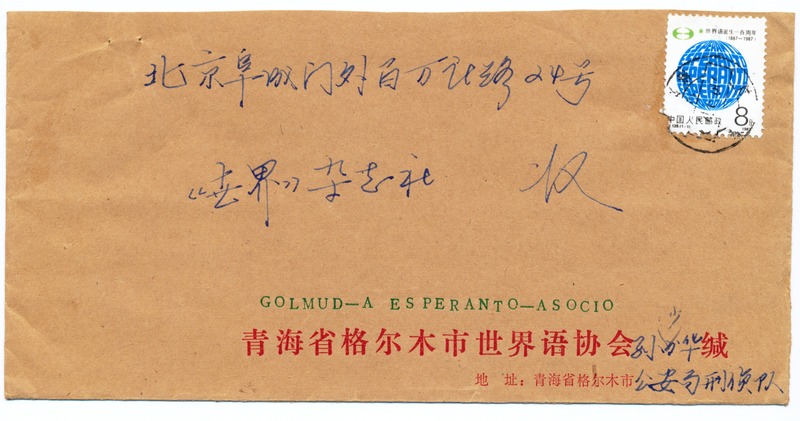 世界语诞生一百周年
(1887—1987)
ESPERANTO
中国人民邮政 8
北京阜城门外百万庄路24号
《世界》杂志社 收
GOLMUD—A ESPERANTO—ASOCIO
青海省格尔木市世界语协会孙少华缄
地 址：青海省格尔木市公安局刑侦队